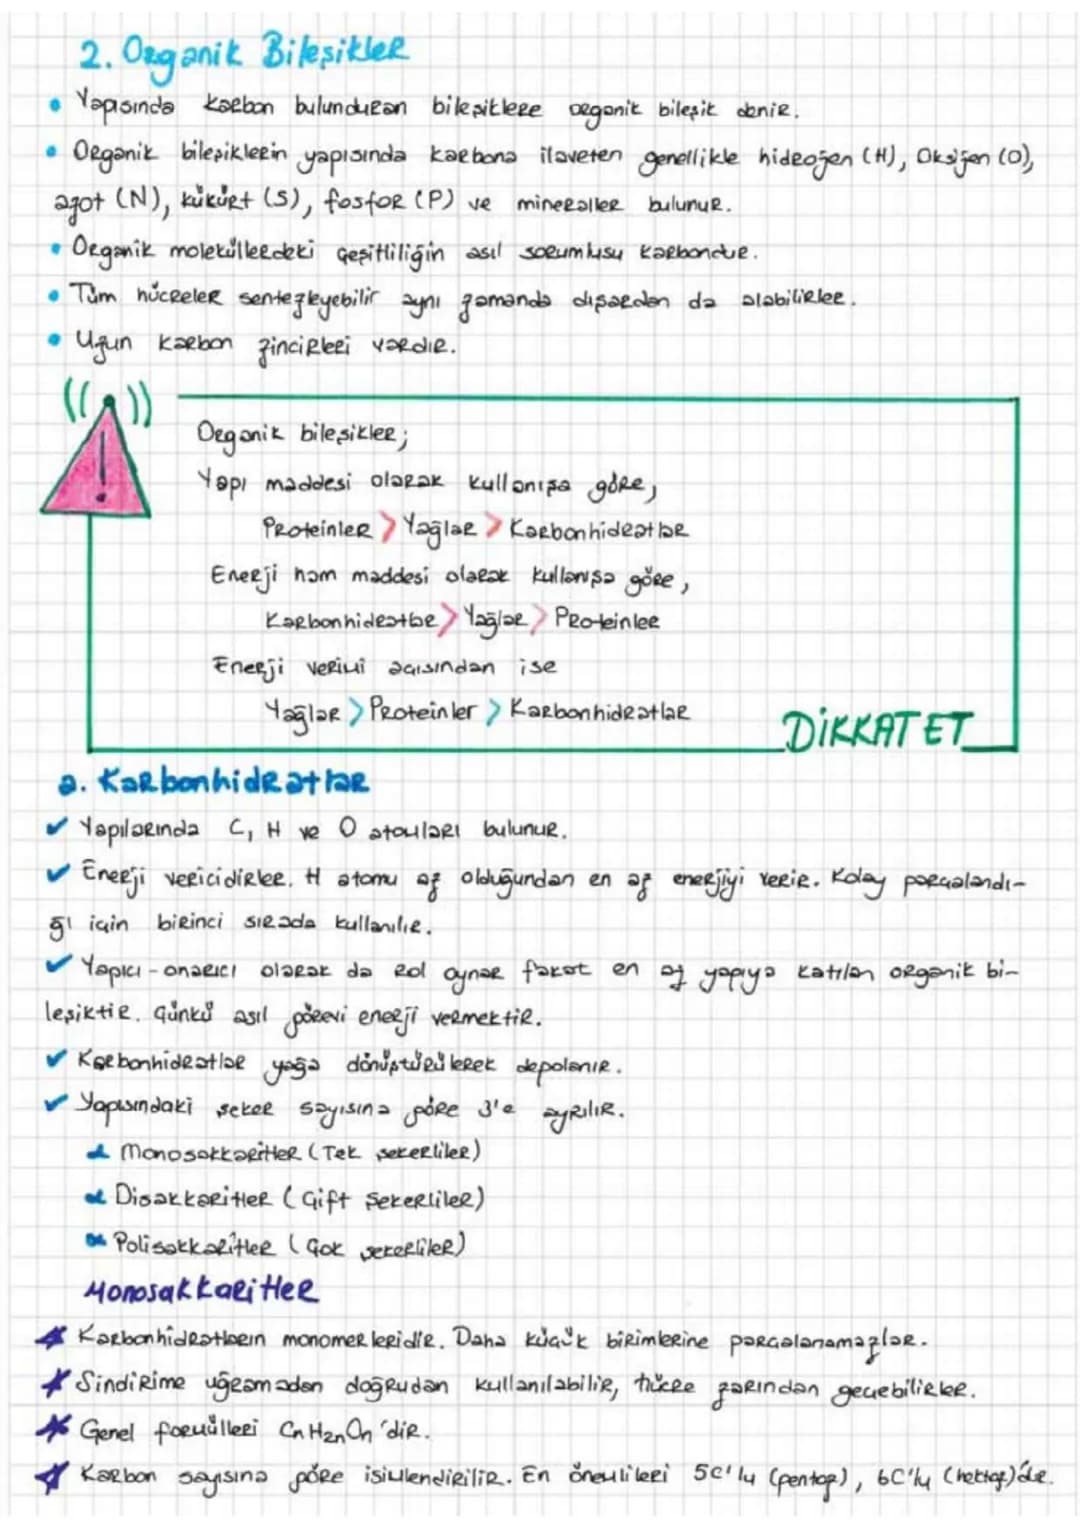 2. Organik Bileşikler
• Yapısında karbon bulunduran bileşiklere organik bileşik denir.
• Organik bileşiklerin yapısında karbona ilaveten genellikle hidrojen (H), Oksijen (O),
azot (N), kükürt (S), fosfor (P) ve mineraller bulunur.
• Organik moleküllerdeki çeşitliliğin asıl sorumlusu karbondur.
• Tüm hücreler sentezleyebilir aynı zamanda dışardan da alabilirler.
• Uzun karbon zincirleri vardır.
Organik bileşikler;
Yapı maddesi olarak kullanışa göre,
Proteinler > Yağlar > Karbonhidratlar
Enerji ham maddesi olarak kullanışa göre,
Karbonhidratlar > Yağlar > Proteinler
Enerji verimi açısından ise
Yağlar > Proteinler > Karbonhidratlar
DİKKAT ET
a. Karbonhidratlar
✓ Yapılarında C, H ve O atomları bulunur.
✓ Enerji vericidirler. H atomu az olduğundan en az enerjiyi verir. Kolay parçalandı-
ğı için birinci sırada kullanılır.
✓ Yapıcı-onarıcı olarak da rol oynar fakat en az yapıya katılan organik bi-
leşiktir. Çünkü asıl görevi enerji vermektir.
✓ Karbonhidratlar yağa dönüştürülerek depolanır.
✓ Yapısındaki şeker sayısına göre 3'e ayrılır.
Monosakkaritler (Tek şekerliler)
Disakkaritler (Çift Şekerliler)
Polisakkaritler (Çok şekerliler)
Monosakkaritler
Karbonhidratların monomerleridir. Daha küçük birimlerine parçalanamazlar.
Sindirime uğramadan doğrudan kullanılabilir, hücre zarından geçebilirler.
Genel formülleri CnH2nOn'dir.
Karbon sayısına göre isimlendirilir. En önemlileri 5C'lu (pentoz), 6C'lu (hektoz)'dur.